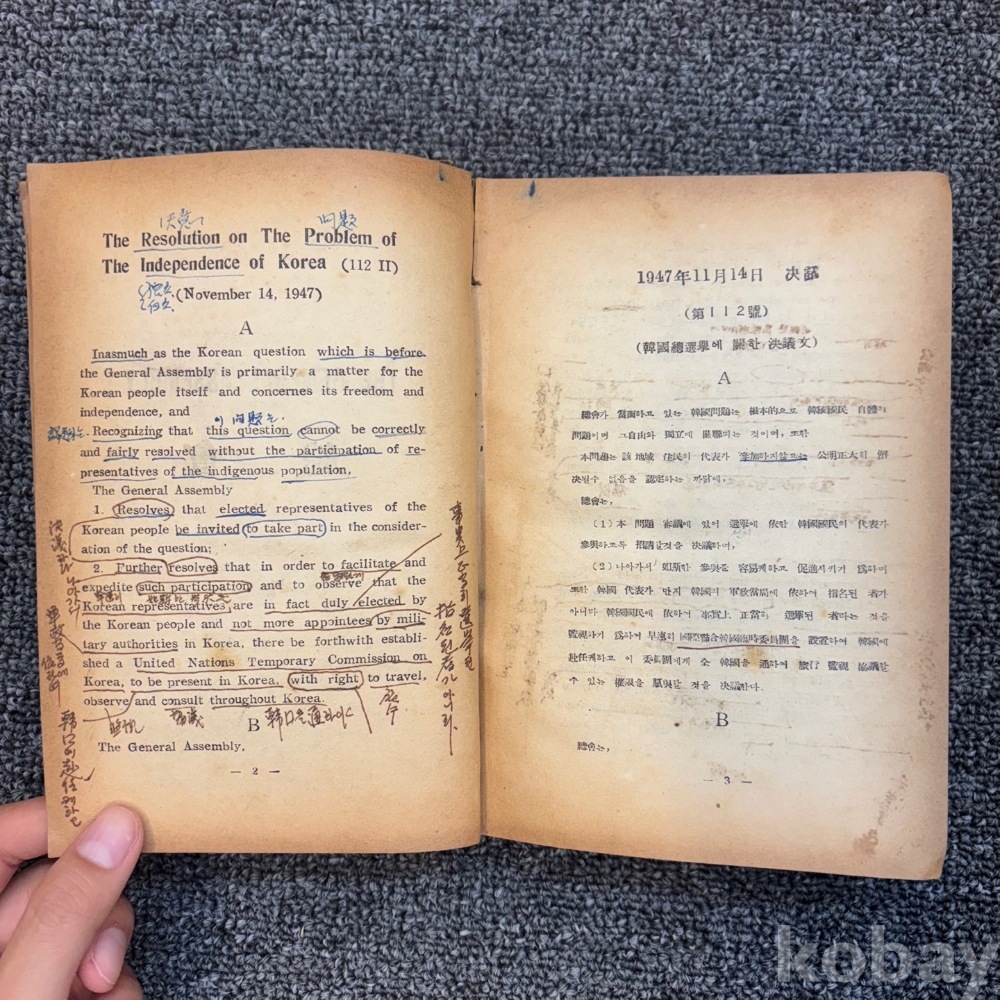 決議
問題
The Resolution on The Problem of
The Independence of Korea (112 II)
(November 14, 1947)
A
Inasmuch as the Korean question which is before
the General Assembly is primarily a matter for the
Korean people itself and concernes its freedom and
independence, and
이 問題는
Recognizing that this question cannot be correctly
and fairly resolved without the participation of re-
presentatives of the indigenous population,
The General Assembly
1. Resolves that elected representatives of the
Korean people be invited to take part in the consider-
ation of the question;
2. Further resolves that in order to facilitate and
expedite such participation and to observe that the
Korean representatives are in fact duly elected by
the Korean people and not more appointees by mili-
tary authorities in Korea, there be forthwith establi-
shed a United Nations Temporary Commission on
Korea, to be present in Korea, with right to travel,
observe and consult throughout Korea.
B
The General Assembly,
— 2 —
1947年11月14日 決議
(第112號)
(韓國總選擧에 關한 決議文)
A
總會가 當面하고 있는 韓國問題는 根本的으로 韓國國民 自體의
問題이며 그自由와 獨立에 關聯되는 것이며, 또한
本問題는 該地域 住民의 代表가 參加하지않고는 公明正大히 解
決될수 없음을 認定하는 까닭에,
總會는,
(1) 本 問題 審議에 있어 選擧에 依한 韓國國民의 代表가
參與하도록 招請할것을 決議하며,
(2) 나아가서 如斯한 參與를 容易케하고 促進시키기 爲하며
또한 韓國 代表가 만지 韓國의 軍政當局에 依하여 指名된 者가
아니라 韓國國民에 依하여 事實上 正當히 選擧된 者라는 것을
監視하기 爲하여 早速히 國際聯合韓國臨時委員團을 設置하여 韓國에
赴任케하고 이 委員團에게 全 韓國을 通하여 旅行 監視 協議할
수 있는 權限을 賦與할 것을 決議한다.
B
總會는,
— 3 —
kobay